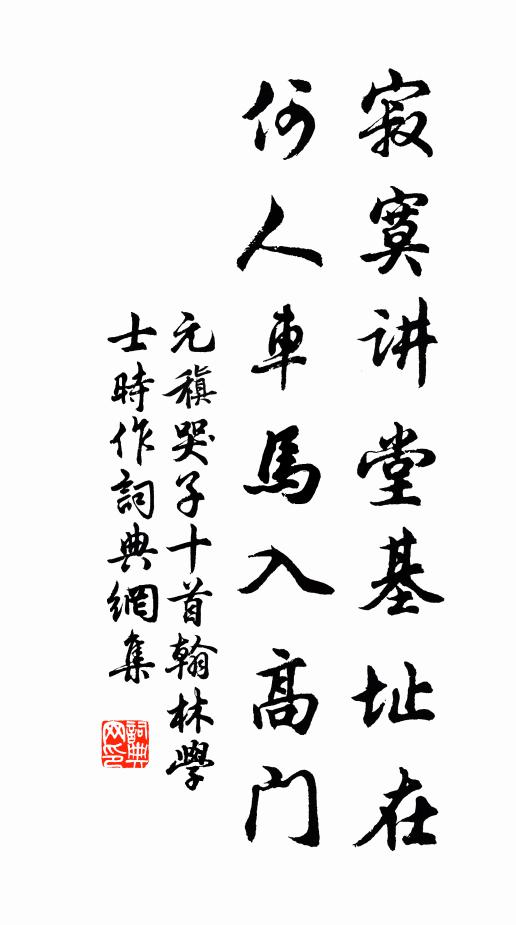 寂寞讲堂基址在
何人車馬入高門
元稹哭子十首翰林學
士時作詞典網集
詞典網印